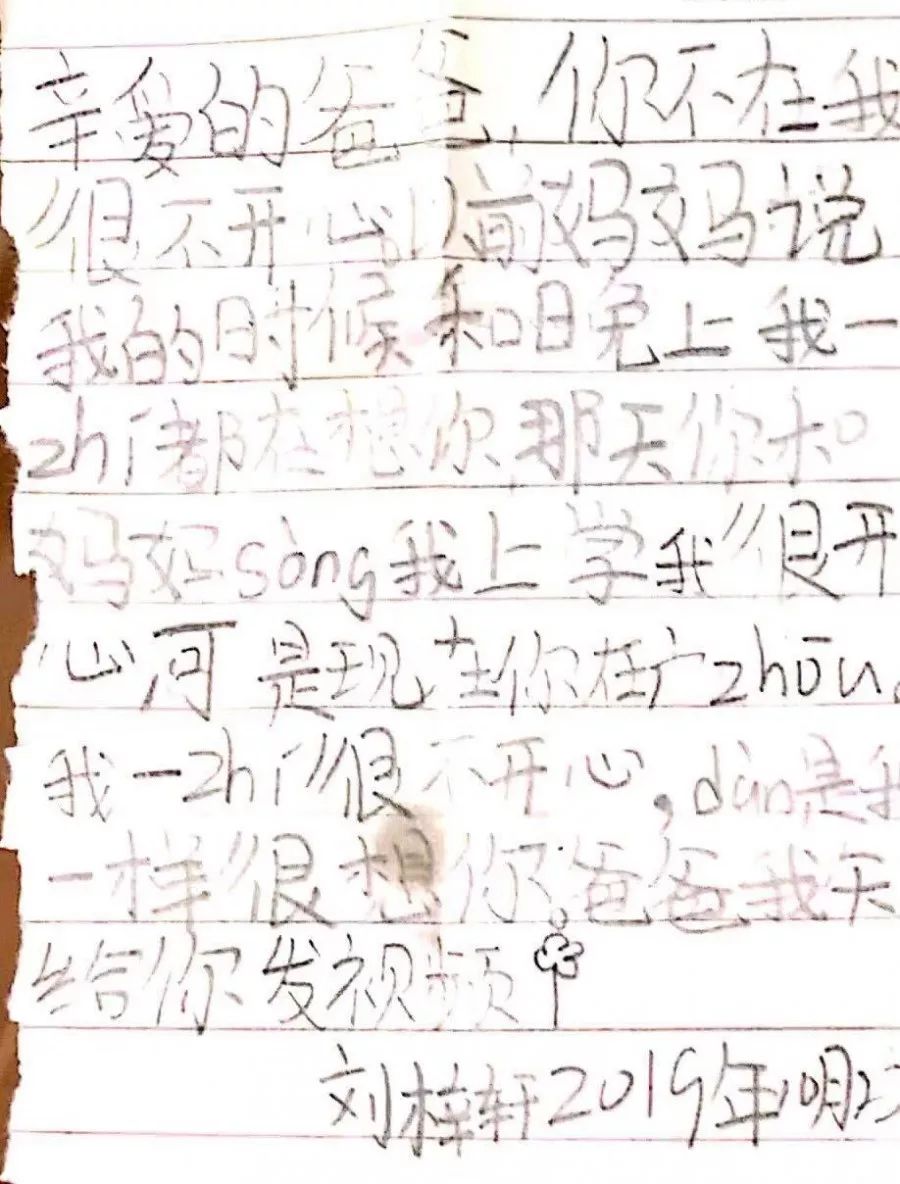 亲爱的爸爸,你不在我
很不开心以前妈妈说
我的时候和日免上我一
zhí都在想你,那天你和
妈妈sòng我上学我很开
心河是现在你在广zhōu。
我一zhí很不开心,dàn是我
一样很想你爸爸我天
给你发视频
刘梓轩2019年10月23